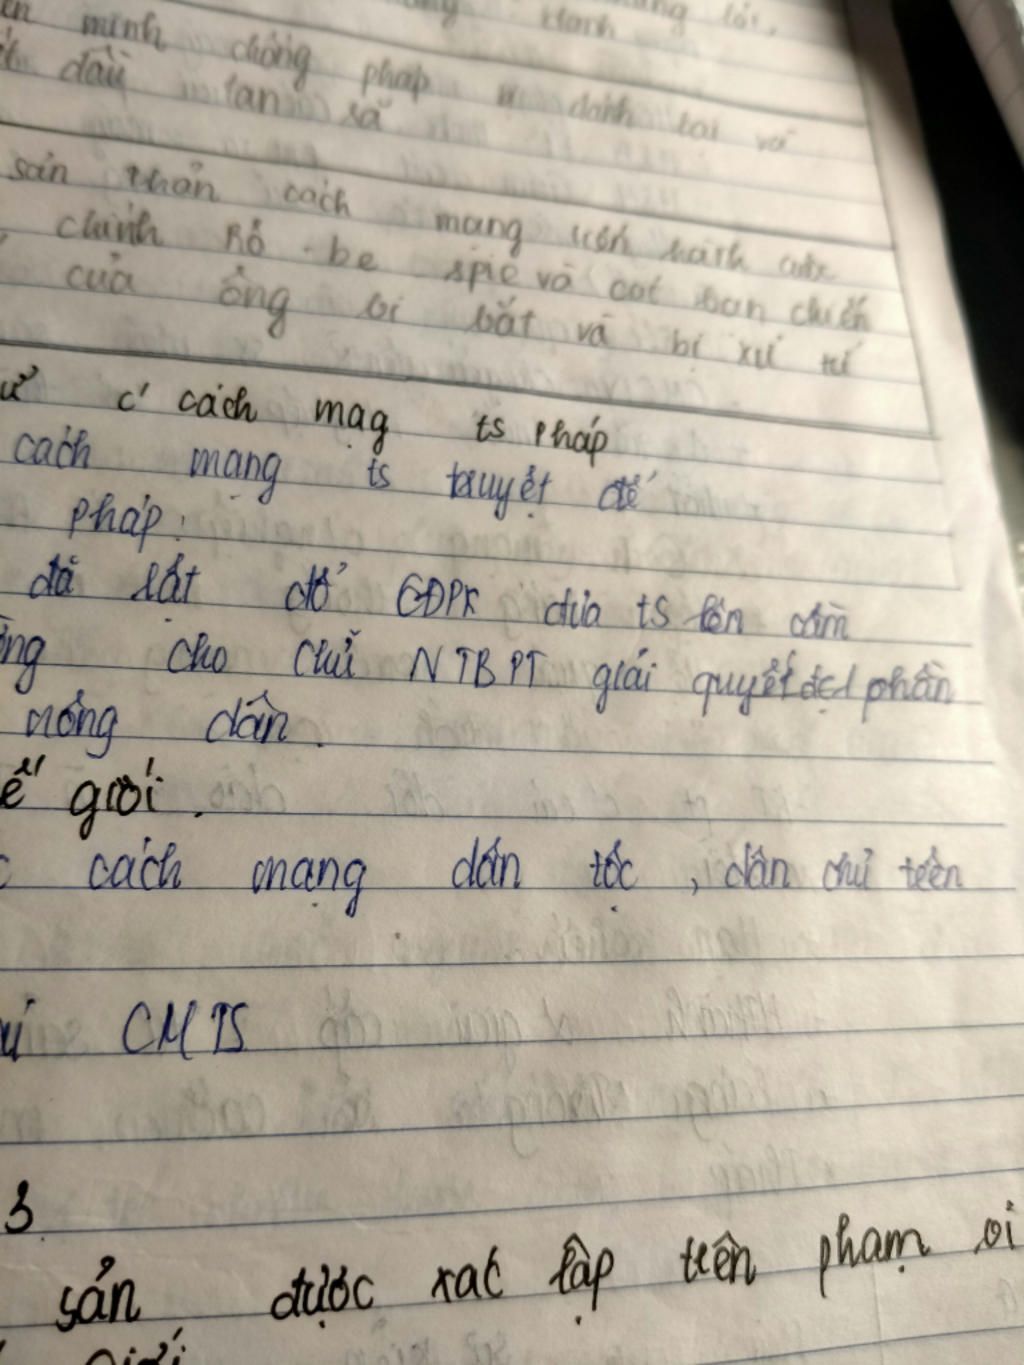 minh chống pháp bị đánh bại và
đầu tan rã
sản phản cách mạng tiến hành cuộc
chính Rô-be spie và cac ban chiến
của ông bi bắt và bị xử tử
c' cách mạg ts Pháp
cách mạng ts truyệt để
pháp.
đã lật đổ CĐPK đưa ts lên cầm
cho chủ NTBPT giải quyết phần
nông dân.
giới.
cách mạng dân tộc, dân chủ trên
CMTS
3
sản được xac lập trên phạm vi
giới